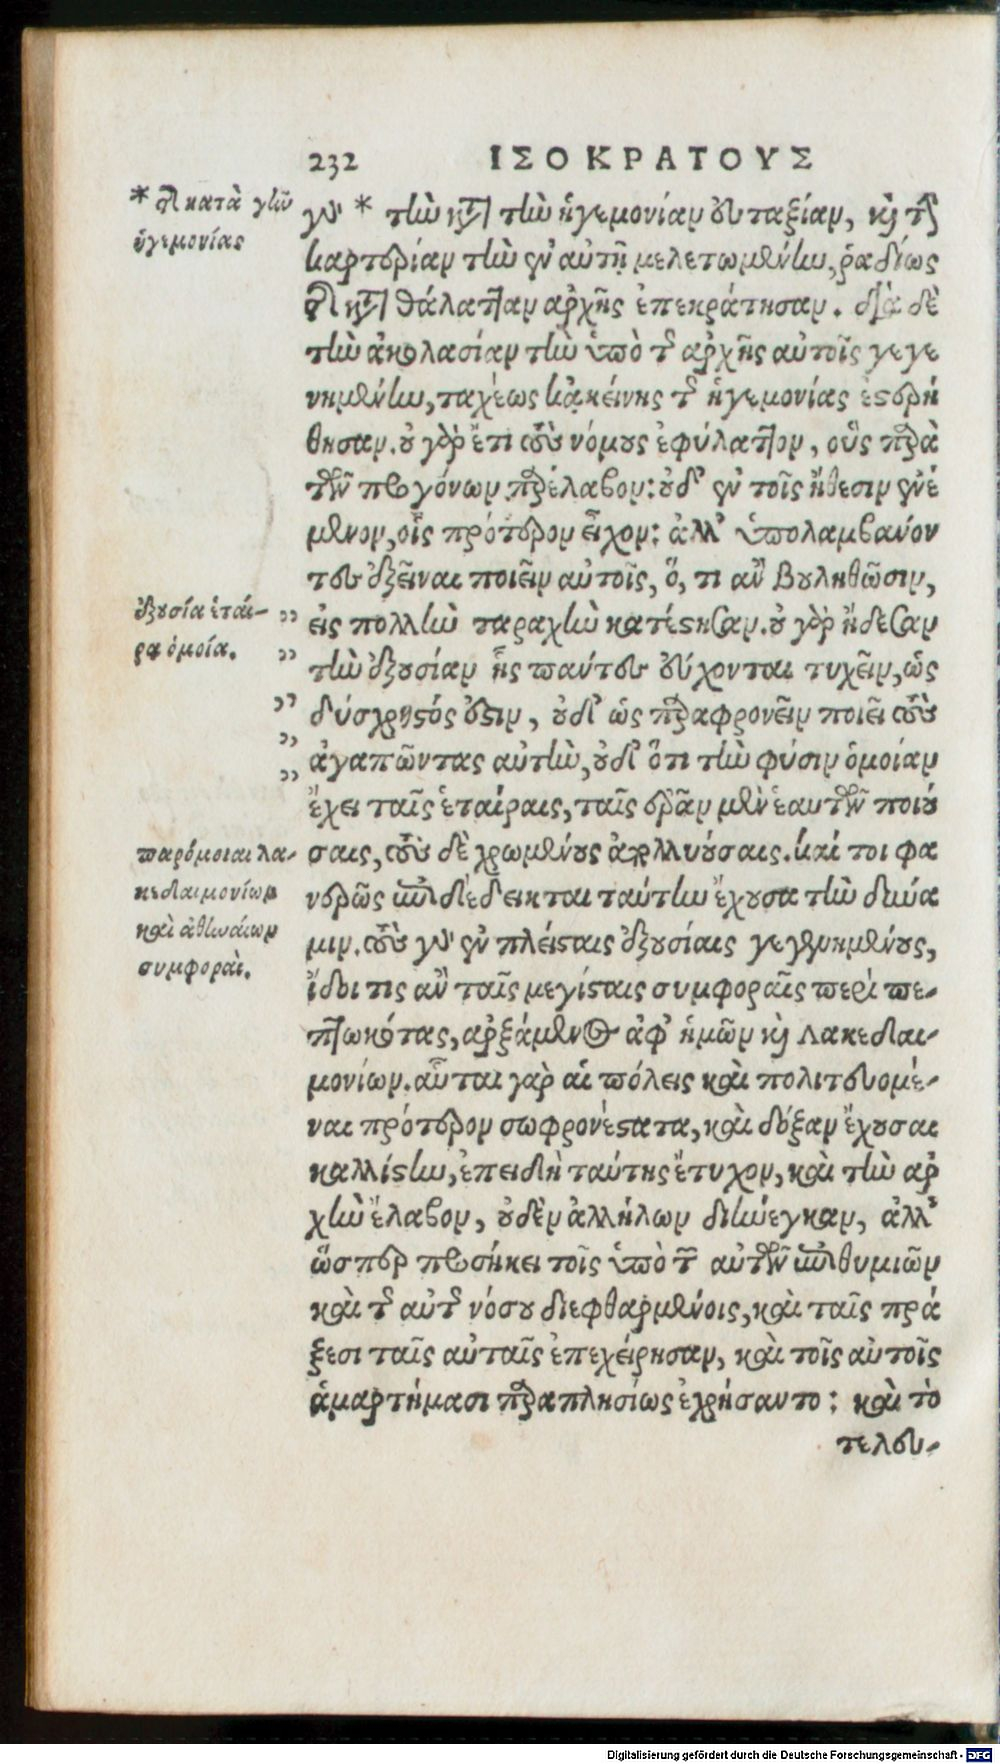 232 ΙΣΟΚΡΑΤΟΥΣ
* τῆς κατὰ γῆν
ἡγεμονίας
γὰρ * τὴν κατὰ τὴν ἡγεμονίαν εὐταξίαν, καὶ τὴν
καρτερίαν τὴν ἐν αὐτῇ μελετωμένην, ῥαδίως
τῆς κατὰ θάλατταν ἀρχῆς ἐπεκράτησαν. διὰ δὲ
τὴν ἀκολασίαν τὴν ὑπὸ τῆς ἀρχῆς αὐτοῖς γεγε
νημένην, ταχέως κἀκείνης τῆς ἡγεμονίας ἐστερή
θησαν. οὐ γὰρ ἔτι τοὺς νόμους ἐφύλαττον, οὓς παρὰ
τῶν προγόνων παρέλαβον: οὐδ' ἐν τοῖς ἤθεσιν ἐνέ
μενον, οἷς πρότερον εἶχον: ἀλλ' ὑπολαμβανόν
τες ἐξεῖναι ποιεῖν αὐτοῖς, ὅ, τι ἂν βουληθῶσιν,
ἐξουσία ἑταί-
ρᾳ ὁμοία.
εἰς πολλὴν ταραχὴν κατέστησαν. οὐ γὰρ ᾔδεσαν
τὴν ἐξουσίαν ἧς πάντες εὔχονται τυχεῖν, ὡς
δύσχρηστός ἐστιν, οὐδ' ὡς παραφρονεῖν ποιεῖ τοὺς
ἀγαπῶντας αὐτὴν, οὐδ' ὅτι τὴν φύσιν ὁμοίαν
ἔχει ταῖς ἑταίραις, ταῖς ἐρᾶν μὲν ἑαυτῶν ποιού
σαις, τοὺς δὲ χρωμένους ἀπολλυούσαις. καί τοι φα
παρόμοιαι λα-
κεδαιμονίων
καὶ ἀθηναίων
συμφοραὶ.
νερῶς ἐπιδέδεικται ταύτην ἔχουσα τὴν δύνα
μιν. τοὺς γὰρ ἐν πλείσταις ἐξουσίαις γεγενημένους,
ἴδοι τις ἂν ταῖς μεγίσταις συμφοραῖς περὶ πε-
πτωκότας, ἀρξάμενος ἀφ' ἡμῶν καὶ Λακεδαι-
μονίων. αὗται γὰρ αἱ πόλεις καὶ πολιτευομέ-
ναι πρότερον σωφρονέστατα, καὶ δόξαν ἔχουσαι
καλλίστην, ἐπειδὴ ταύτης ἔτυχον, καὶ τὴν ἀρ
χὴν ἔλαβον, οὐδὲν ἀλλήλων διήνεγκαν, ἀλλ'
ὥσπερ προσήκει τοῖς ὑπὸ τῶν αὐτῶν ἐπιθυμιῶν
καὶ τῆς αὐτῆς νόσου διεφθαρμένοις, καὶ ταῖς πρά
ξεσι ταῖς αὐταῖς ἐπεχείρησαν, καὶ τοῖς αὐτοῖς
ἁμαρτήμασι παραπλησίως ἐχρήσαντο: καὶ τὸ
τελευ-
Digitalisierung gefördert durch die Deutsche Forschungsgemeinschaft - DFG